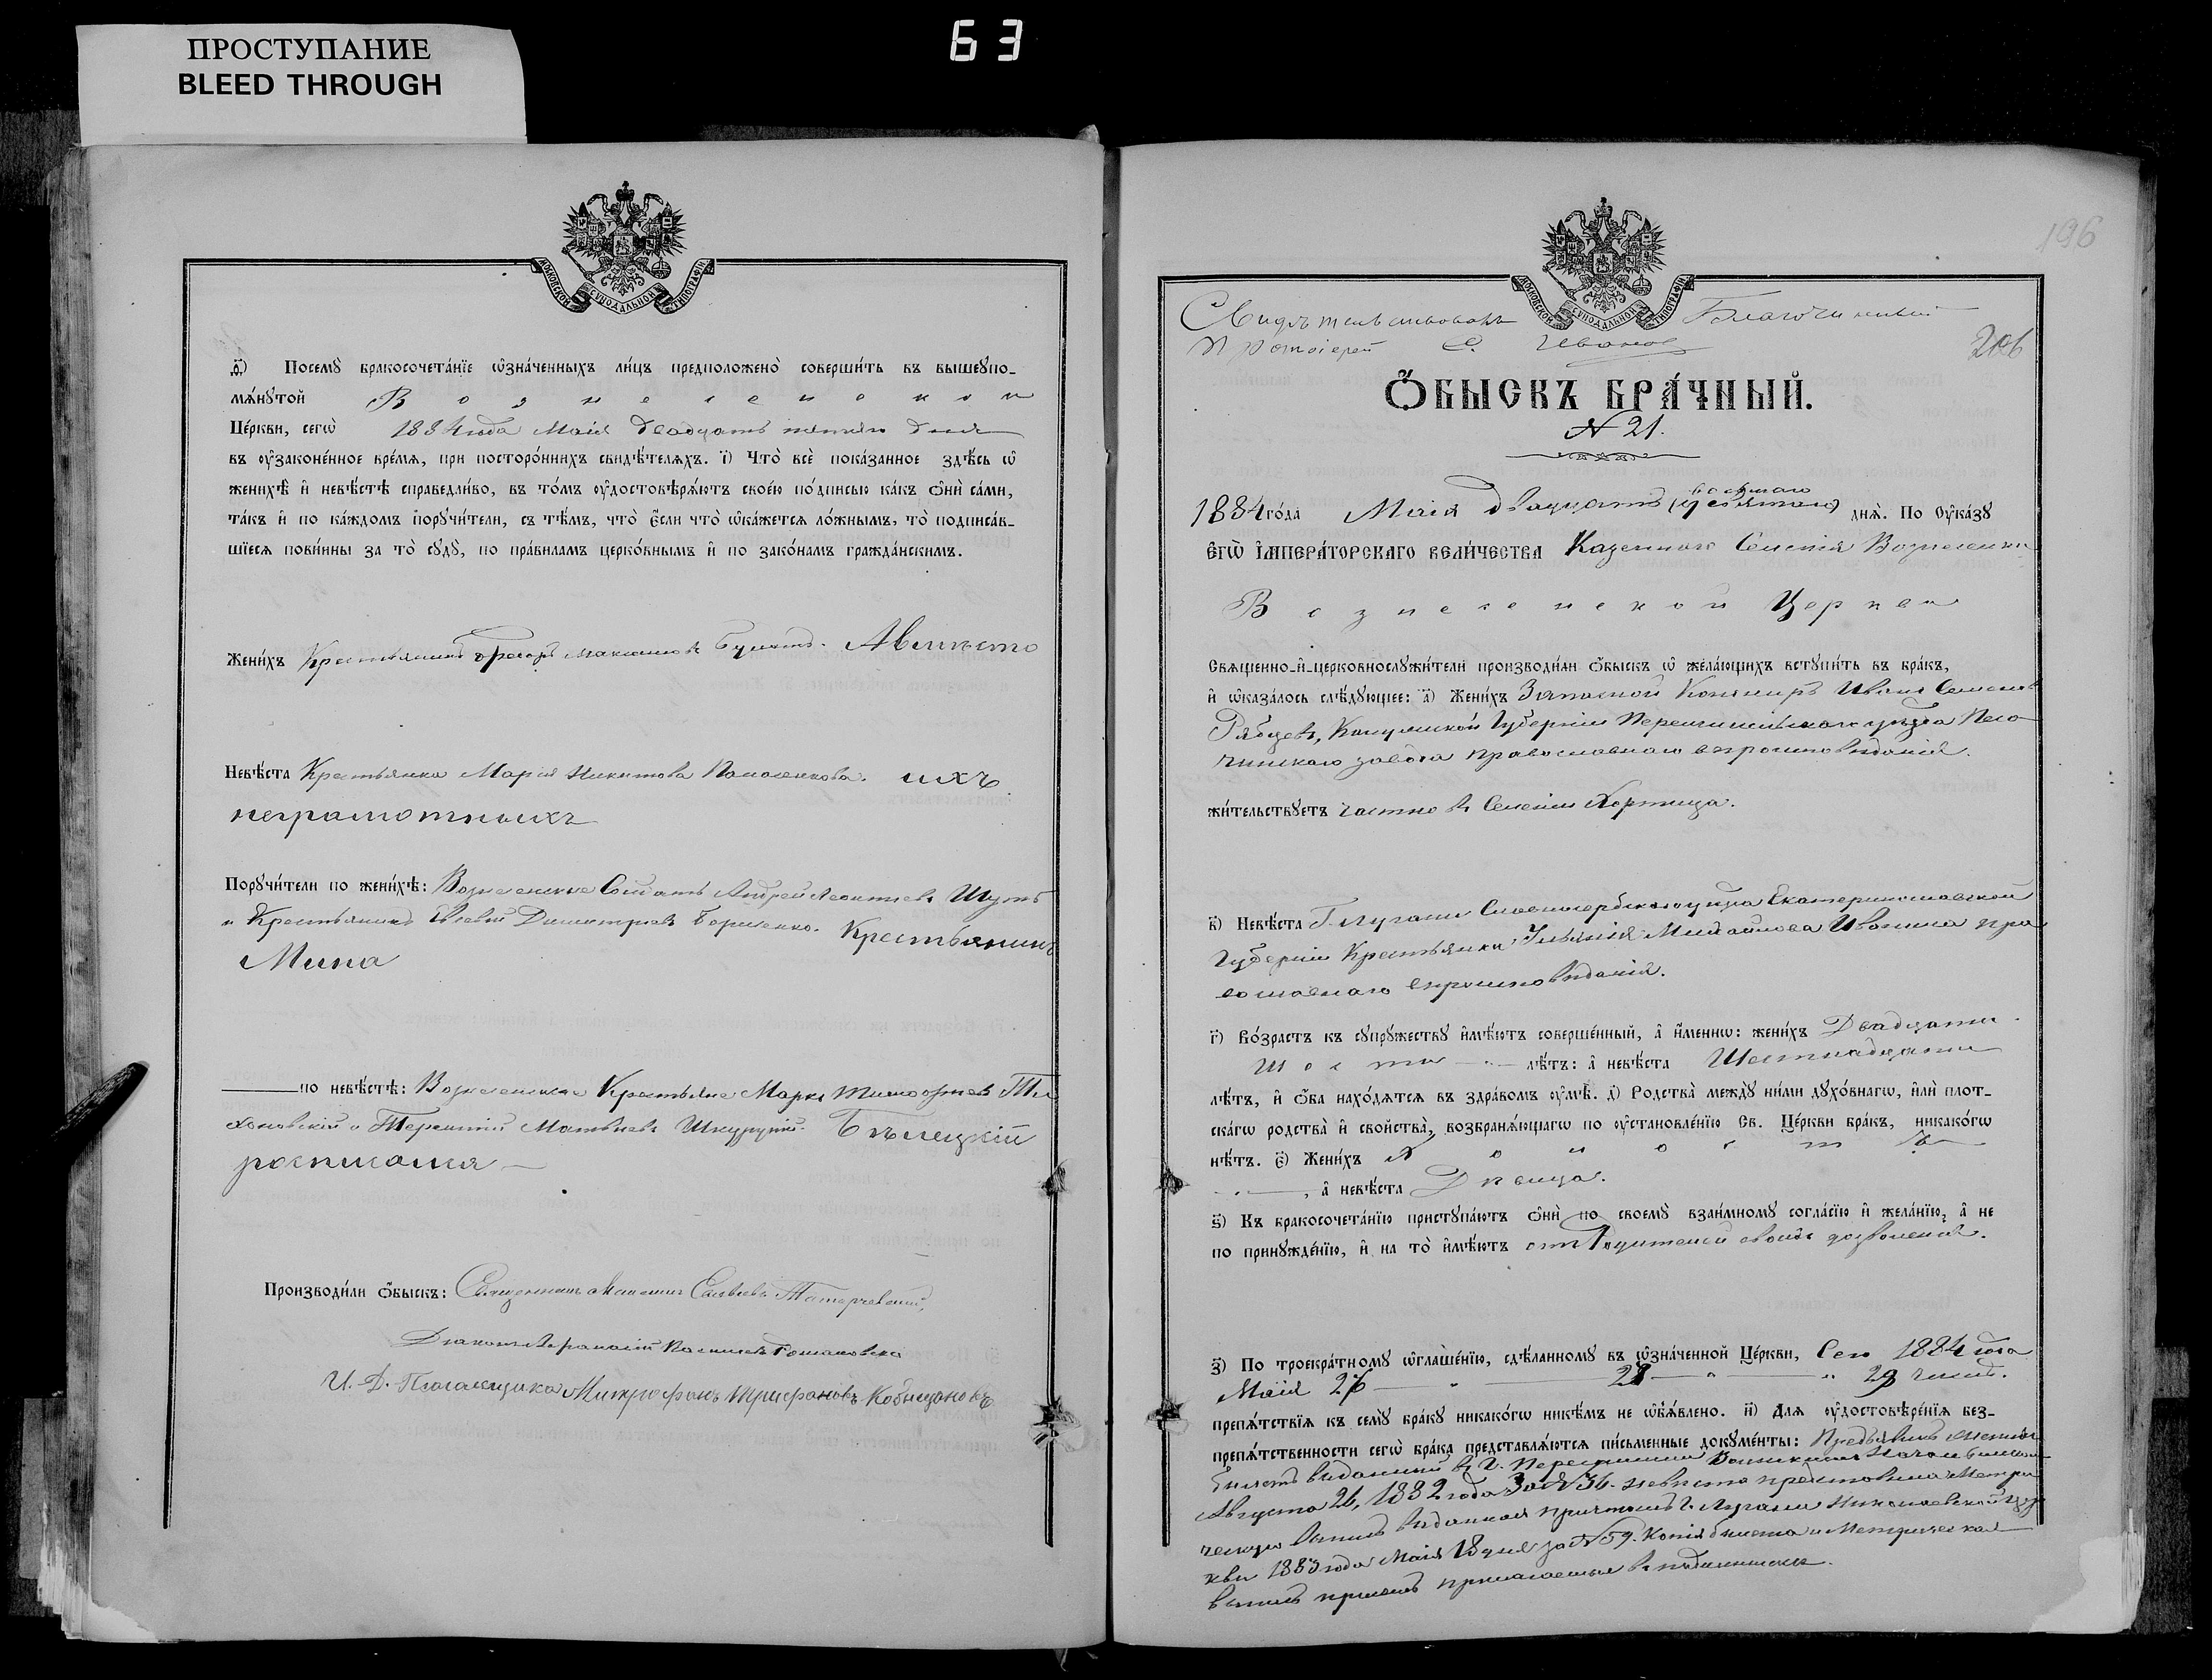 ПРОСТУПАНИЕ
BLEED THROUGH
63
МОСКОВСКОЙ СѴНОДАЛЬНОЙ ТИПОГРАФІИ
Посемꙋ̀ бракосочета́нїе ѡ҆зна́ченныхъ ли́цъ предположено̀ соверши́ть въ вышеꙋпо-
мѧ́нꙋтой Вознесенской
Це́ркви, сегѡ̀ 1884 года Маія двадцать пятаго дня
въ ᲂу҆законе́нное вре́мѧ, при посторо́ннихъ свидѣ́телѧхъ. і҃) Что̀ всѐ пока́занное здѣ́сь ѡ҆
женихѣ̀ и҆ невѣ́стѣ справедли́во, въ то́мъ ᲂу҆достовѣрѧ́ютъ свое́ю по́дписью ка́къ ѻ҆нѝ са́ми,
та́къ и҆ по ка́ждомъ порꙋчи́тели, съ тѣ́мъ, что̀ є҆́сли что̀ ѡ҆ка́жетсѧ ло́жнымъ, то̀ подписа́в-
шїесѧ пови́нны за то̀ сꙋдꙋ̀, по пра́виламъ церко́внымъ и҆ по зако́намъ гражда́нскимъ.
Жени́хъ Крестьянинъ Григоръ Максимовъ
Невѣ́ста Крестьянка Марія Никитова ихъ
неграмотныхъ
Порꙋчи́тели по женихѣ̀: Вознесенские Солдатъ Андрей Леонтиевъ Шутъ
и Крестьянинъ Евсевій Димитріевъ Борисенко. Крестьянинъ
Мина
по невѣ́стѣ: Вознесенские Крестьяне Марко Тимофиевъ Ти
хоновскій и Терентій Матвѣевъ Шкурупій. Бѣлецкій
росписался
Производи́ли ѻ҆́быскъ: Священникъ Максимъ Савиевъ
Діаконъ Афанасій Василіевъ
И. Д. Псаломщика Митрофанъ Трифоновъ
196
МОСКОВСКОЙ СѴНОДАЛЬНОЙ ТИПОГРАФІИ
Свидѣтельствовалъ Благочинный
Протоіерей С. Ивановъ
206
Ѻ҆́БЫСКЪ БРА́ЧНЫЙ.
№ 21.
1884 го́да Маія двадцать (девятаго) восьмаго днѧ̀. По Оу҆ка́зꙋ
Є҆гѡ̀ И҆мпера́торскаго вели́чества Казеннаго Селенія Вознесенки
Вознесенской Церкви
Свѧще́нно-и҆-церковнослꙋжи́тели производи́ли ѻ҆́быскъ ѡ҆ жела́ющихъ встꙋпи́ть въ бра́къ,
и҆ ѡ҆каза́лось слѣ́дꙋющее: а҃) Жени́хъ Запасной Канониръ Иванъ Семеновъ
Рябцевъ, Калужской Губерніи Перемишльскаго уѣзда Песо
чинскаго завода православнаго вѣроисповѣданія.
жи́тельствꙋетъ частно въ Селеніи Хортица.
в҃) Невѣ́ста Г. Лугани Славяносербскаго уѣзда Екатеринославской
Губерніи Крестьянка Уліянія Михайлова Ивонина пра
вославнаго вѣроисповѣданія.
г҃) Во́зрастъ къ сꙋпрꙋ́жествꙋ и҆мѣ́ютъ соверше́нный, а҆ и҆́менно: жени́хъ Двадцати
Шести лѣ́тъ: а҆ невѣ́ста Шестнадцати
лѣ́тъ, и҆ ѻ҆́ба нахо́дѧтсѧ въ здра́вомъ ᲂу҆мѣ̀. д҃) Родства̀ междꙋ̀ ни́ми дꙋхо́внагѡ, и҆лѝ плот-
ска́гѡ родства̀ и҆ сво́йства, возбранѧ́ющагѡ по ᲂу҆становле́нїю Св. Це́ркви бра́къ, никако́гѡ
нѣ́тъ. є҃) Жени́хъ Холостъ
, а҆ невѣ́ста Дѣвица.
ѕ҃) Къ бракосочета́нїю пристꙋпа́ютъ ѻ҆нѝ по своемꙋ̀ взаи́мномꙋ согла́сїю и҆ жела́нїю, а҆ не
по принꙋжде́нїю, и҆ на то̀ и҆мѣ́ютъ отъ Родителей своихъ дозволеніе.
з҃) По троекра́тномꙋ ѡ҆глаше́нїю, сдѣ́ланномꙋ въ ѡ҆зна́ченной Це́ркви, Сего 1884 года
Маія 26 28 29 чиселъ.
препѧ́тствїѧ къ семꙋ̀ бра́кꙋ никако́гѡ никѣ́мъ не ѡ҆б̾ѧ́влено. и҃) Для ᲂу҆достовѣре́нїѧ без-
препѧ́тственности сегѡ̀ бра́ка представлѧ́ютсѧ пи́сьменные докꙋме́нты: Предъявилъ женихъ
билетъ виданный въ Г. Перемишли Воинскимъ Начальникомъ
Августа 26, 1882 года за № 36. невѣста представила Метри
ческую Выпись виданная причтомъ Г. Лугани Николаевской Цер
кви 1883 года Маія 18 дня за № 59. Копія билета и Метрическая
выпись при семъ прилагаемые въ подлинникѣ.